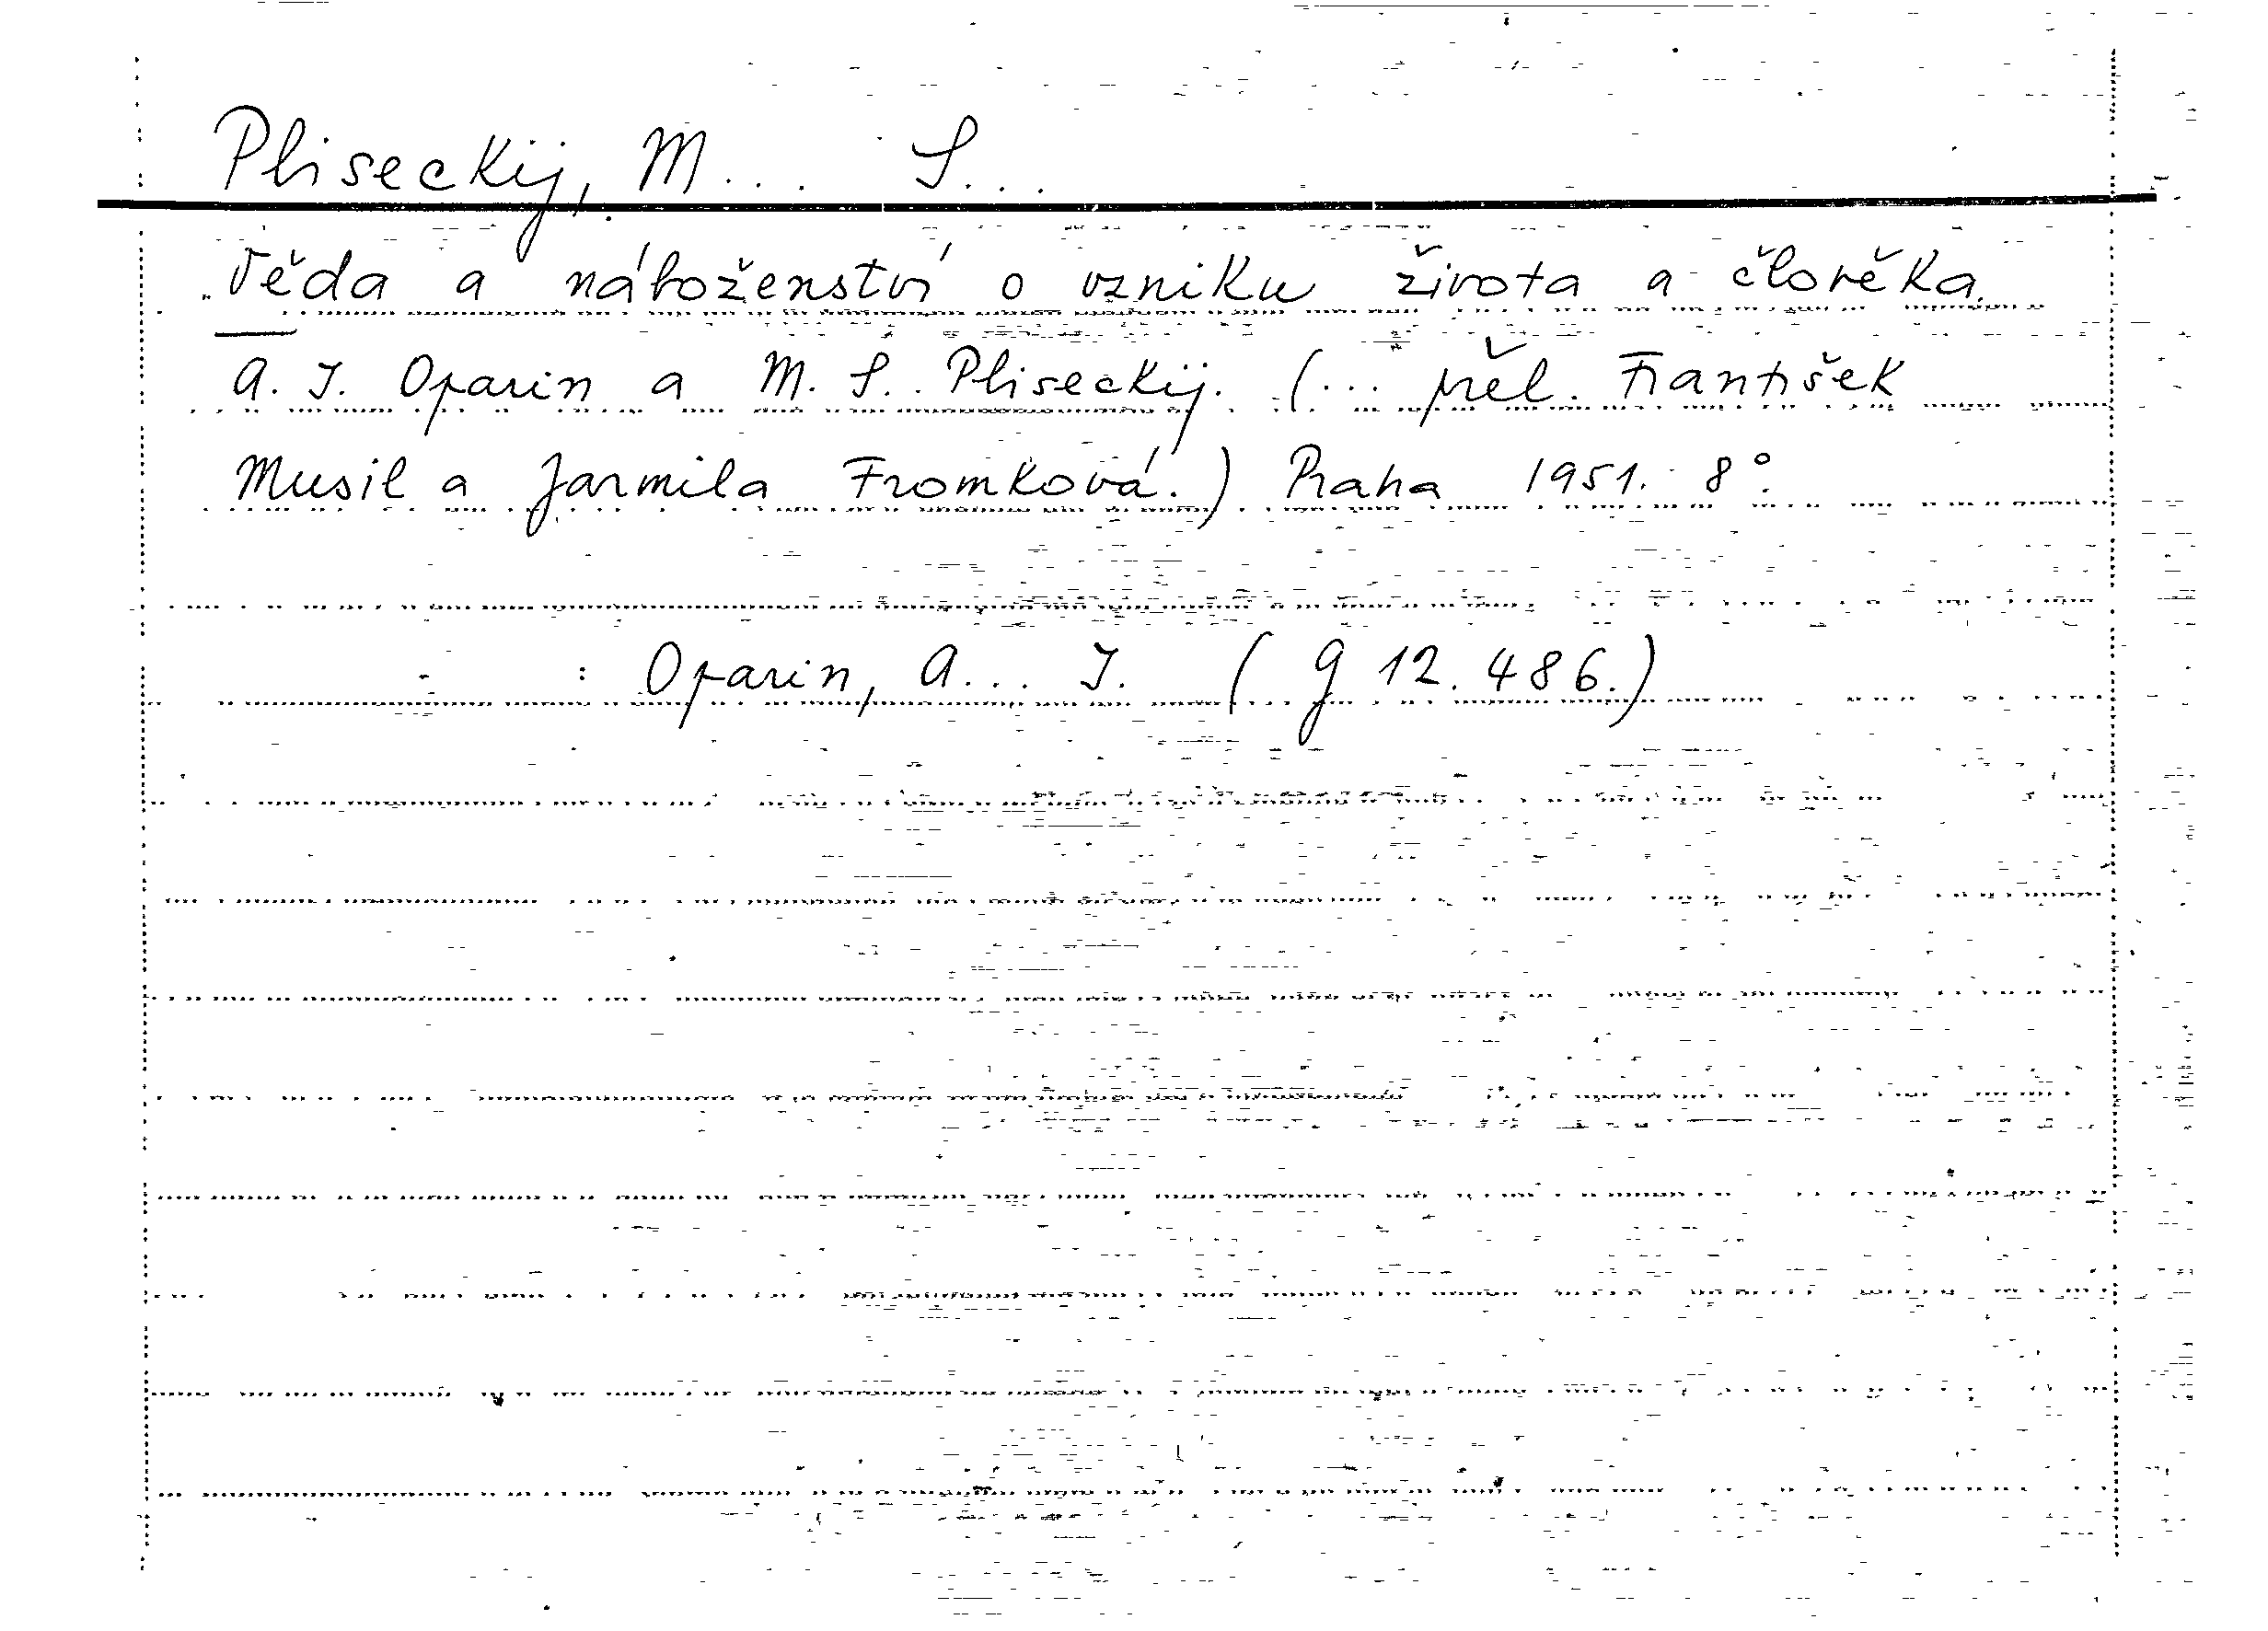 Pliseckij, M... S...
Věda a náboženství o vzniku života a člověka.
A. I. Oparin a M. S. Pliseckij. (... přel. František
Musil a Jarmila Fromková.) Praha 1951. 8°.
: Oparin, A... I. (G 12.486.)